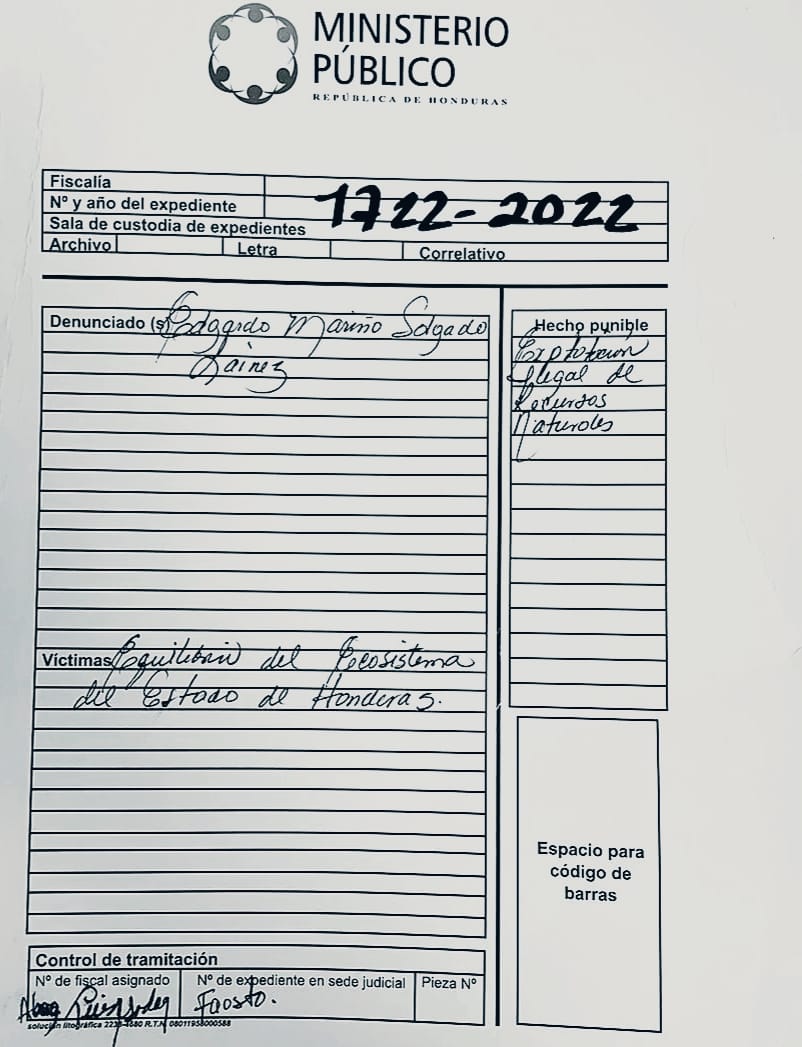 MINISTERIO
PÚBLICO
REPÚBLICA DE HONDURAS
Fiscalía
Nº y año del expediente
1722-2022
Sala de custodia de expedientes
Archivo Letra Correlativo
Denunciado (s) Edgardo Mariño Salgado
Lainez
Hecho punible
Explotacion
Ilegal de
Recursos
Naturales
Víctimas Equilibrio del Ecosistema
del Estado de Honderas.
Espacio para
código de
barras
Control de tramitación
Nº de fiscal asignado Nº de expediente en sede judicial Pieza Nº
Abog Faosto.
solución litográfica R.T.N. 08011958000588